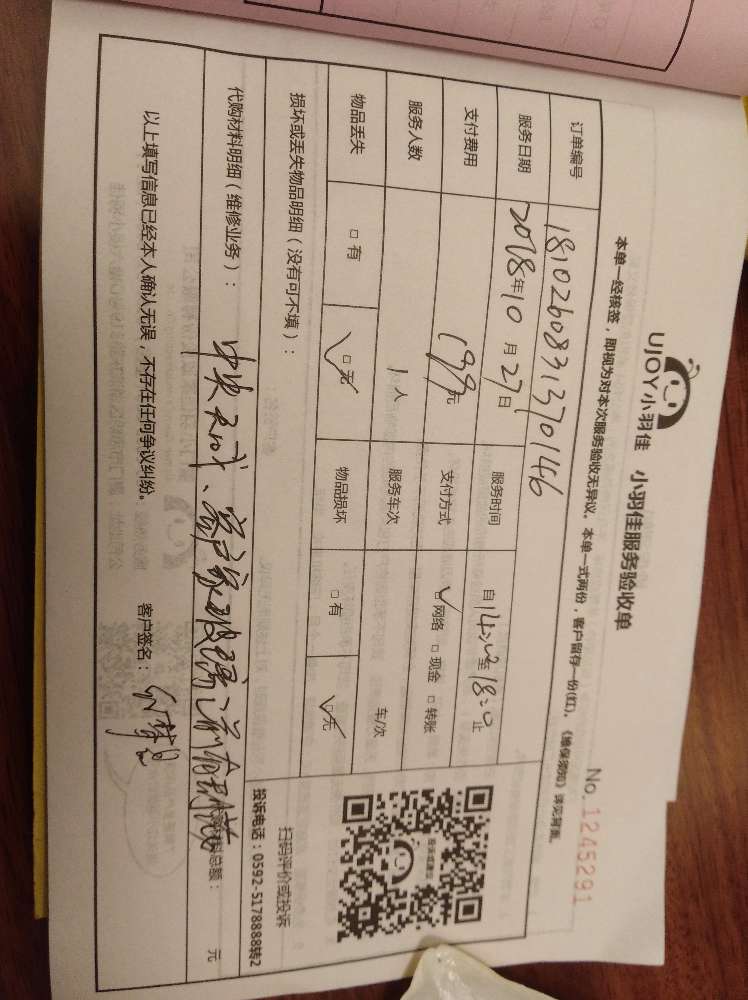 UJOY小羽佳 小羽佳服务验收单
No. 1245291
本单一经核签，即视为对本次服务验收无异议。本单一式两份，客户留存一份(红)，《维保须知》详见背面。
订单编号 1810260831370146
服务日期 2018年10月27日 服务时间 自14:00至18:0止
支付费用 199元 支付方式 □网络 □现金 □转账
服务人数 1人 服务车次 车/次
物品丢失 □有 □无 物品损坏 □有 □无
损坏或丢失物品明细（没有可不填）：
扫码评价或投诉
投诉电话：0592-5178888转2
代购材料明细（维修业务）： 客户家玻璃 总额： 元
以上填写信息已经本人确认无误，不存在任何争议纠纷。 客户签名：